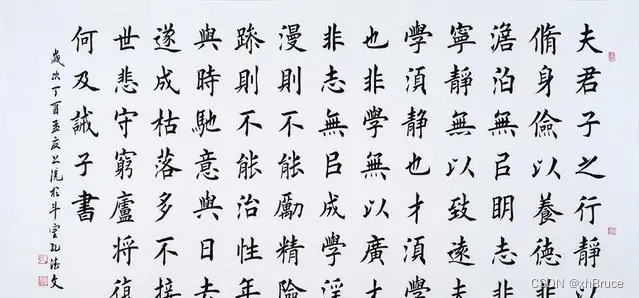 夫君子之行靜以
脩身儉以養德非
澹泊無㠯明志非
寧靜無以致遠夫
學須靜也才須學
也非學無以廣才
非志無㠯成學淫
漫則不能勵精險
躁則不能治性年
與時馳意與日去
遂成枯落多不接
世悲守窮廬將復
何及誡子書
歲次丁酉孟夏上浣於斗
CSDN @xhBruce